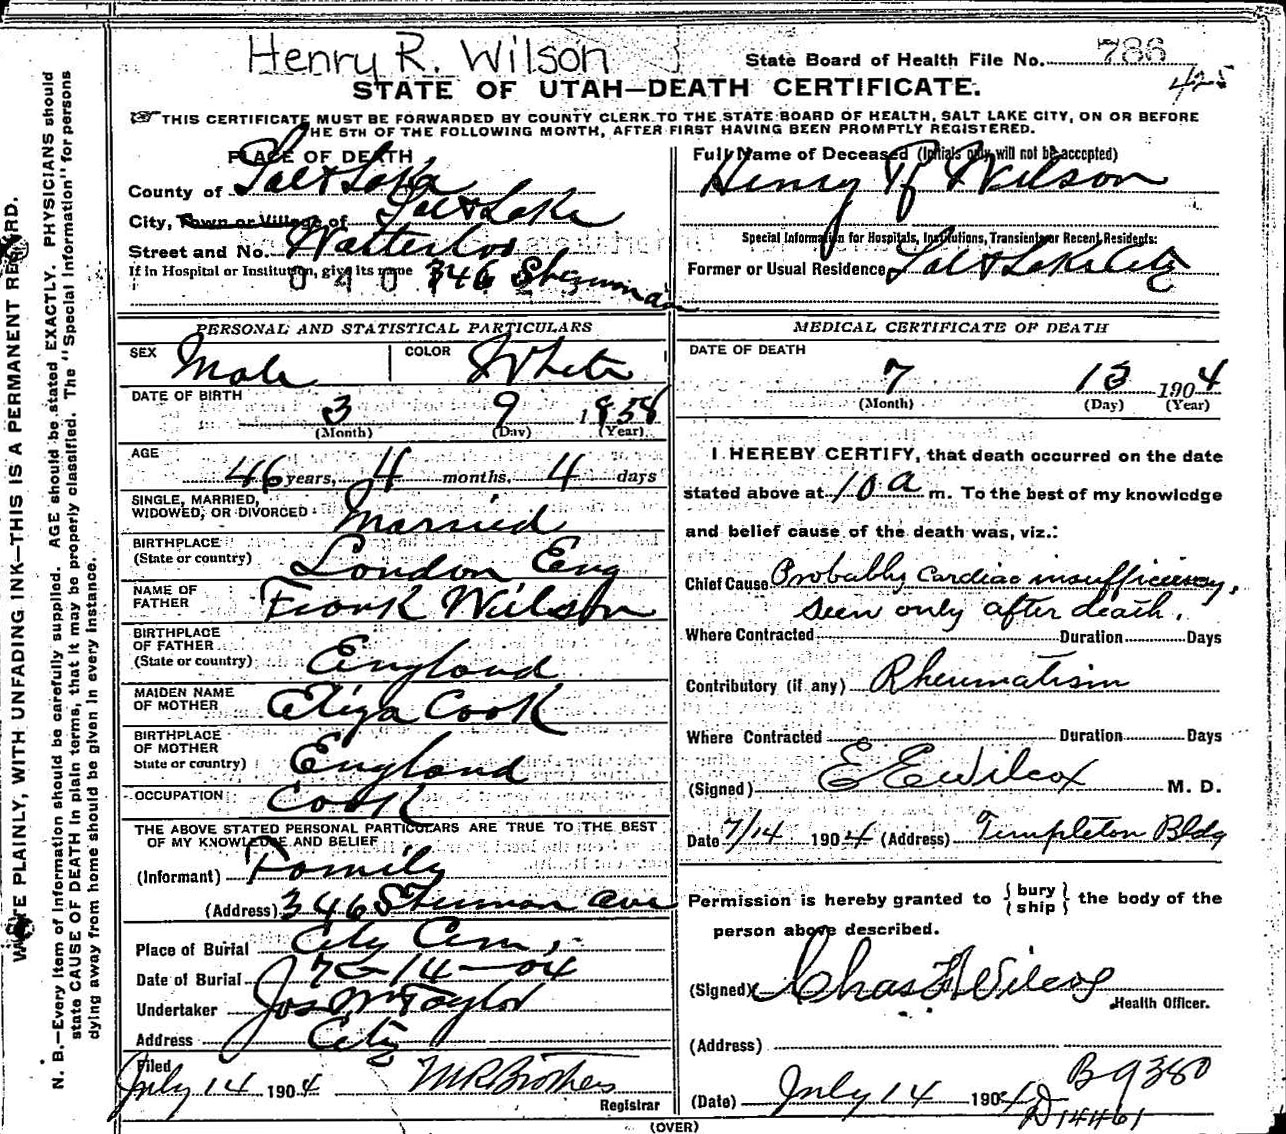 Henry R. Wilson
State Board of Health File No. 786
425
STATE OF UTAH—DEATH CERTIFICATE.
☞THIS CERTIFICATE MUST BE FORWARDED BY COUNTY CLERK TO THE STATE BOARD OF HEALTH, SALT LAKE CITY, ON OR BEFORE
THE 5TH OF THE FOLLOWING MONTH, AFTER FIRST HAVING BEEN PROMPTLY REGISTERED.
PLACE OF DEATH
County of Salt Lake
City, Town or Village of Salt Lake
Street and No. Watterloo
If in Hospital or Institution, give its name 346 Sherman
0 4 0
Full Name of Deceased (Initials only will not be accepted)
Henry R Wilson
Special Information for Hospitals, Institutions, Transients or Recent Residents:
Former or Usual Residence Salt Lake City
PERSONAL AND STATISTICAL PARTICULARS
SEX Male COLOR White
DATE OF BIRTH
3 9 1858
(Month) (Day) (Year)
AGE
46 years, 4 months, 4 days
SINGLE, MARRIED,
WIDOWED, OR DIVORCED Married
BIRTHPLACE
(State or country) London Eng
NAME OF
FATHER Frank Wilson
BIRTHPLACE
OF FATHER
(State or country) England
MAIDEN NAME
OF MOTHER Eliza Cook
BIRTHPLACE
OF MOTHER
State or country) England
OCCUPATION Cook
THE ABOVE STATED PERSONAL PARTICULARS ARE TRUE TO THE BEST
OF MY KNOWLEDGE AND BELIEF
(Informant) Family
(Address) 346 Sherman Ave
Place of Burial City Cem,
Date of Burial 7-14-04
Undertaker Jos Wm Taylor
Address City
Filed
July 14 1904 M R Brothers
Registrar
MEDICAL CERTIFICATE OF DEATH
DATE OF DEATH
7 13 1904
(Month) (Day) (Year)
I HEREBY CERTIFY, that death occurred on the date
stated above at 10 a m. To the best of my knowledge
and belief cause of the death was, viz.:
Chief Cause Probably cardiac insufficiency,
seen only after death.
Where Contracted Duration Days
Contributory (if any) Rheumatism
Where Contracted Duration Days
(Signed) E E Wilcox M. D.
Date 7/14 1904 (Address) Templeton Bldg
Permission is hereby granted to { bury ship } the body of the
person above described.
(Signed) Chas F Wilcox
Health Officer.
(Address)
(Date) July 14 1904
B9380
D14461
(OVER)
WRITE PLAINLY, WITH UNFADING INK—THIS IS A PERMANENT RECORD.
N. B.—Every item of information should be carefully supplied. AGE should be stated EXACTLY. PHYSICIANS should
state CAUSE OF DEATH in plain terms, that it may be properly classified. The "Special Information" for persons
dying away from home should be given in every instance.